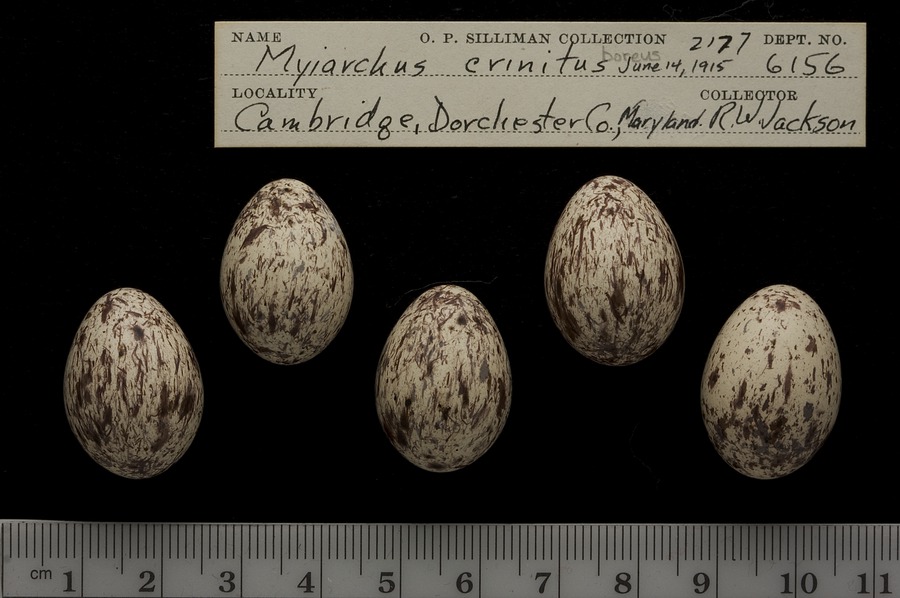 NAME O. P. SILLIMAN COLLECTION 2177 DEPT. NO.
Myiarchus crinitus boreus June 14, 1915 6156
LOCALITY COLLECTOR
Cambridge, Dorchester Co., Maryland. R.W. Jackson
cm 1 2 3 4 5 6 7 8 9 10 11